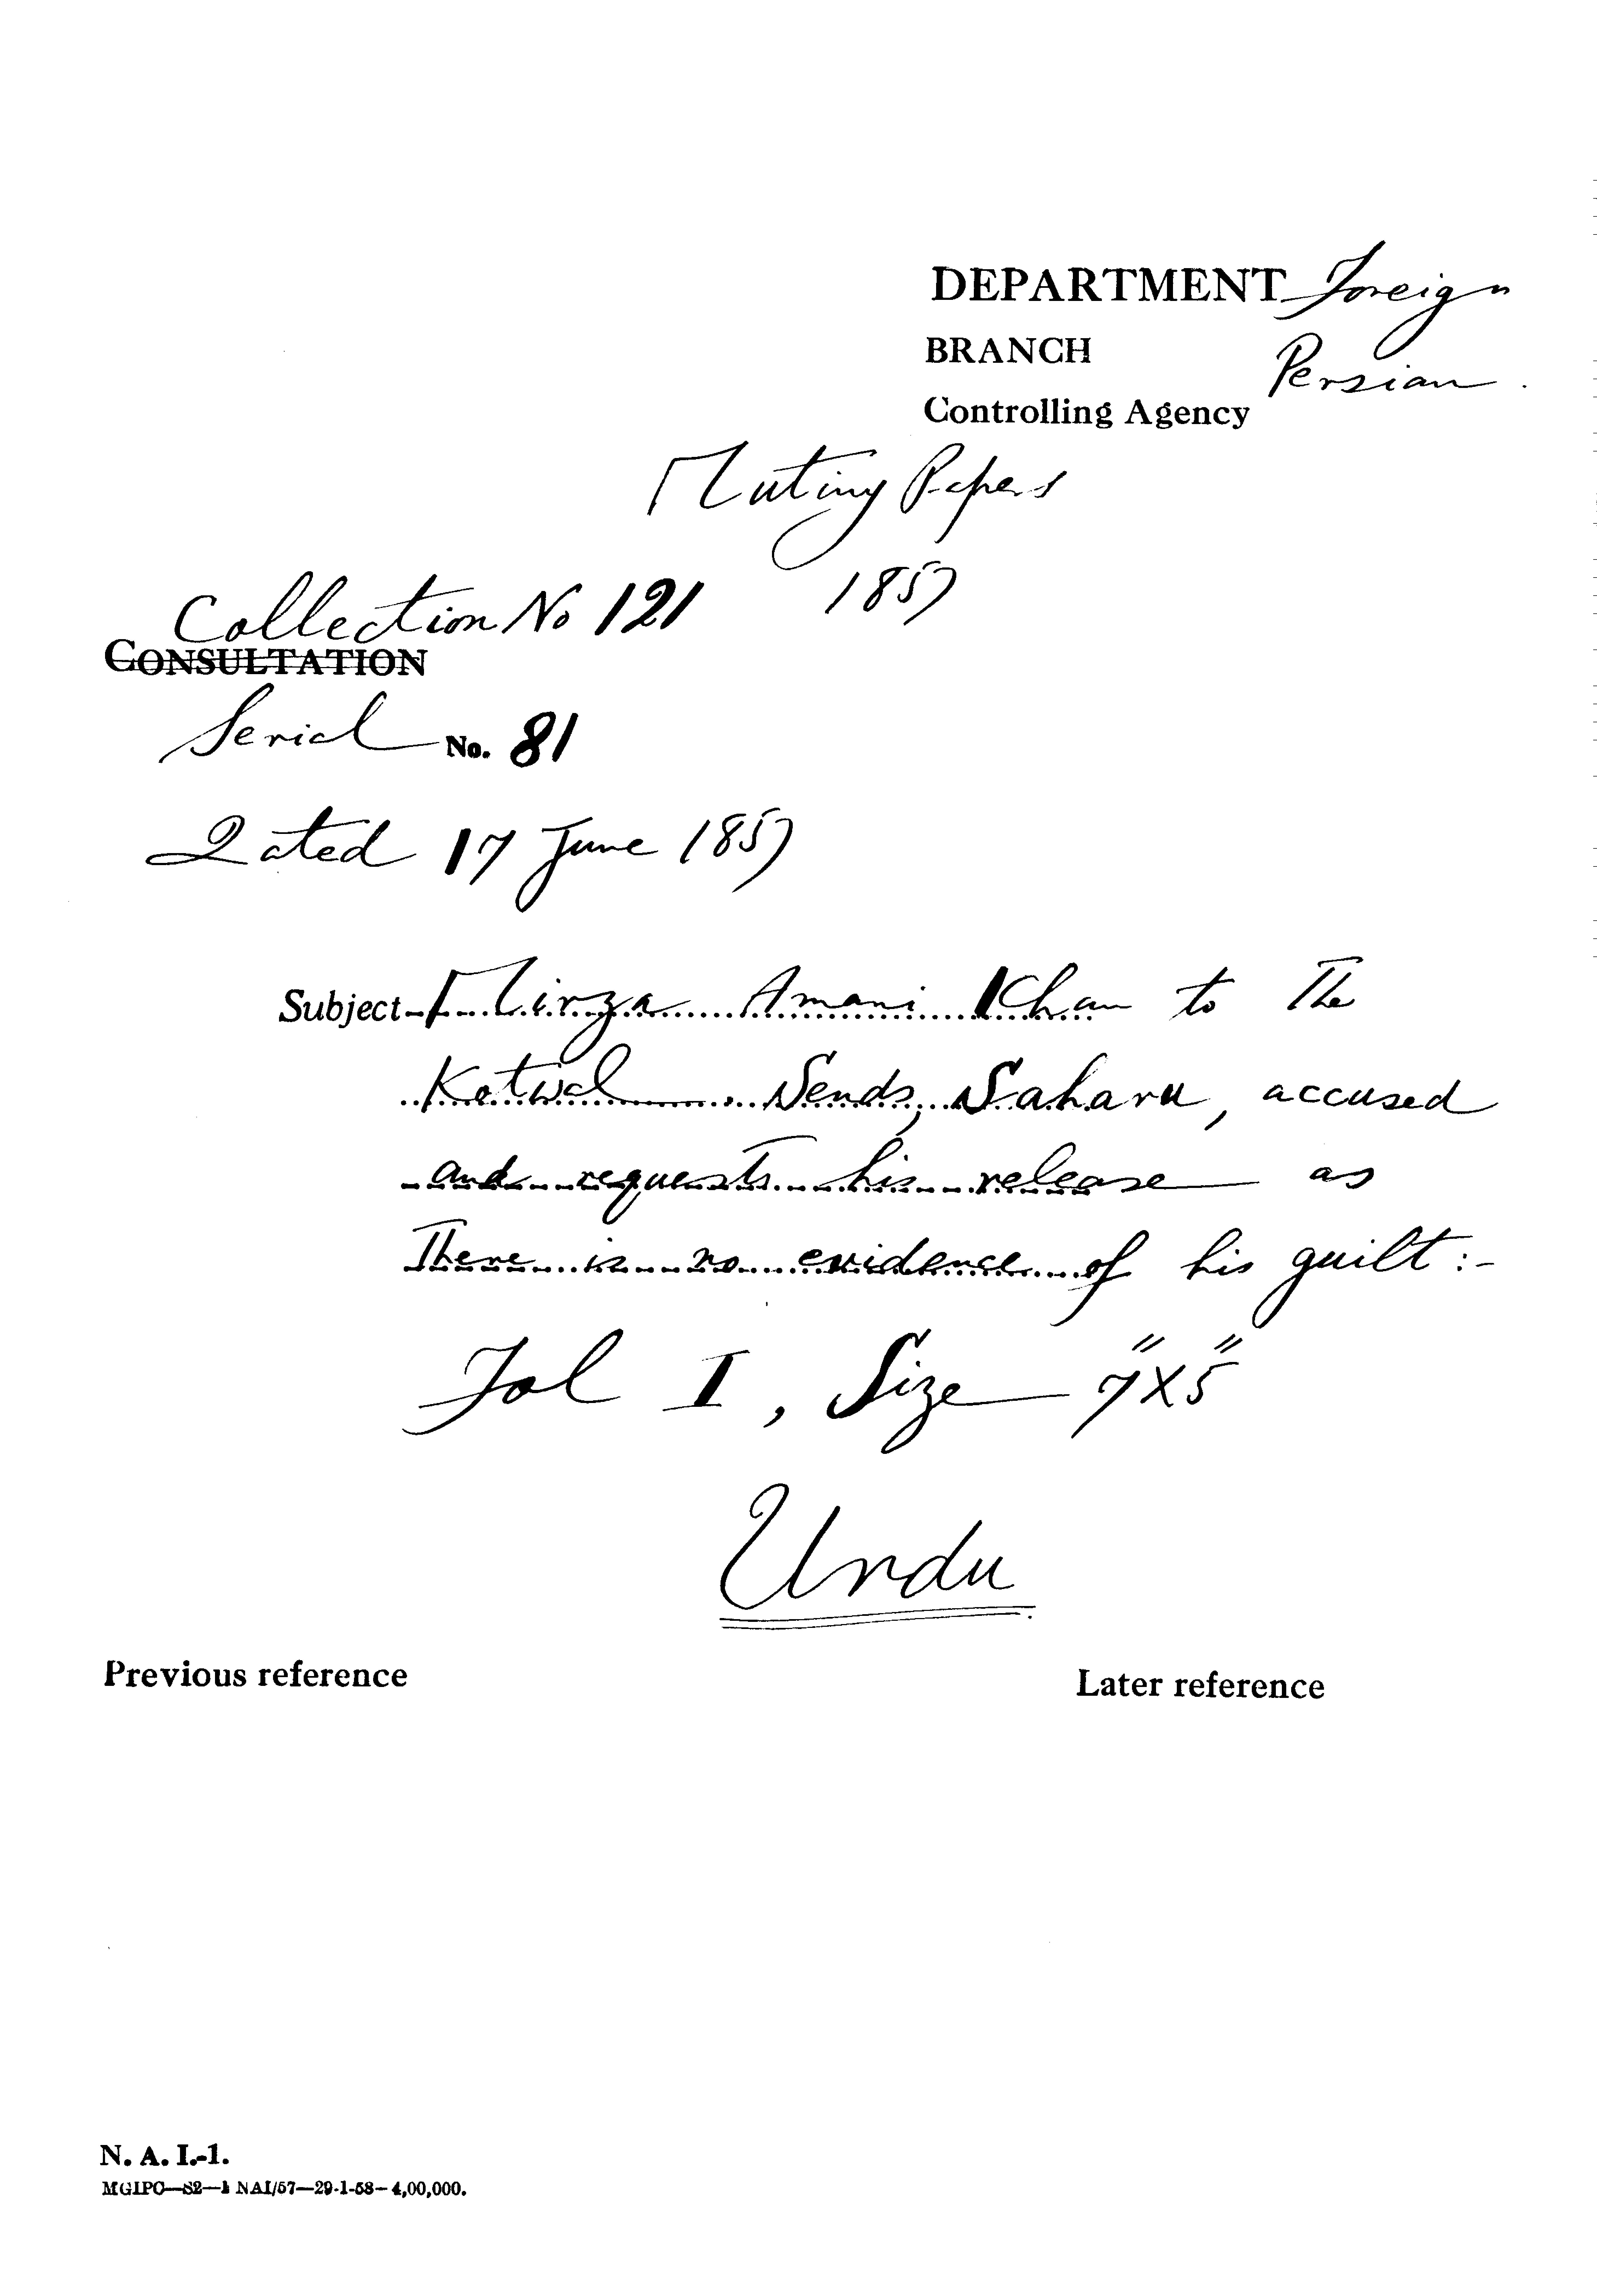 DEPARTMENT Foreign
BRANCH Persian
Controlling Agency
Mutiny Papers
1857
Collection No 121
CONSULTATION
Serial No. 81
Dated 17 June 1857
Subject Mirza Amani Khan to The
Kotwal. Sends, Saharu, accused
and requests his release as
There is no evidence of his guilt:-
Fol I, Size 7"X5"
Urdu
Previous reference
Later reference
N. A. I.-1.
MGIPC—S2—1 NAI/57—29-1-58—4,00,000.